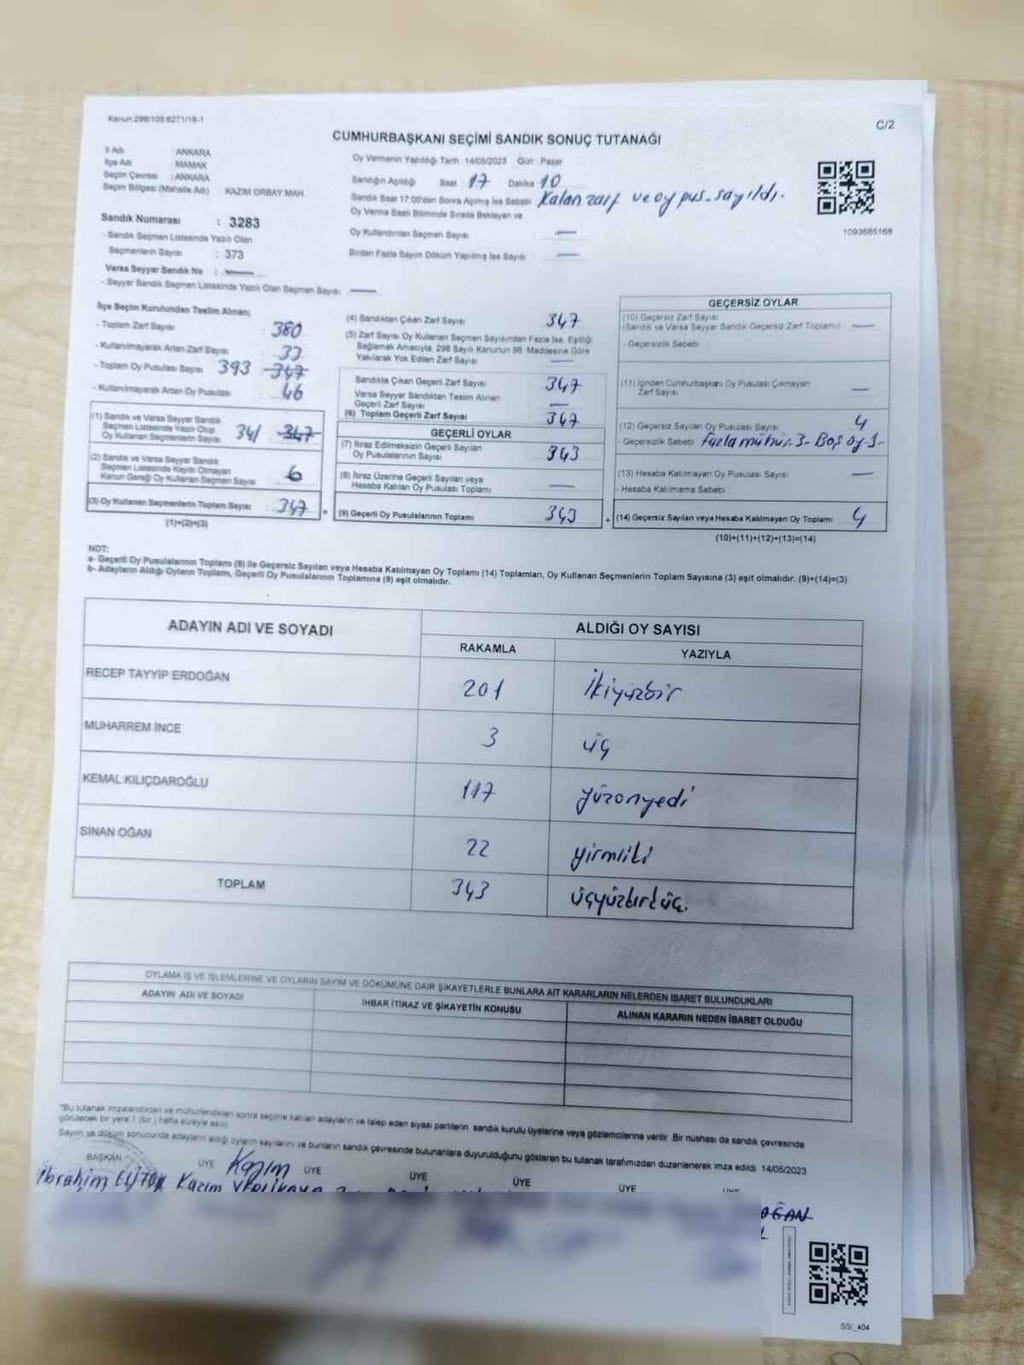 Kanun:298/105:6271/18-1
C/2
CUMHURBAŞKANI SEÇİMİ SANDIK SONUÇ TUTANAĞI
İl Adı : ANKARA
İlçe Adı : MAMAK
Seçim Çevresi : ANKARA
Seçim Bölgesi (Mahalle Adı) : KAZIM ORBAY MAH.
Sandık Numarası : 3283
- Sandık Seçmen Listesinde Yazılı Olan
Seçmenlerin Sayısı : 373
Varsa Seyyar Sandık No :
- Seyyar Sandık Seçmen Listesinde Yazılı Olan Seçmen Sayısı
Oy Vermenin Yapıldığı Tarih 14/05/2023 Gün Pazar
Sandığın Açıldığı Saat 17 Dakika 10
Sandık Saat 17:00'den Sonra Açılmış İse Sebebi Kalan zarf ve oy pus. sayıldı.
Oy Verme Saati Bitiminde Sırada Bekleyen ve
Oy Kullandırılan Seçmen Sayısı
Birden Fazla Sayım Döküm Yapılmış İse Sayısı
1093685168
İlçe Seçim Kurulundan Teslim Alınan;
- Toplam Zarf Sayısı 380
- Kullanılmayarak Artan Zarf Sayısı 33
- Toplam Oy Pusulası Sayısı 393 347
- Kullanılmayarak Artan Oy Pusulası 46
(1) Sandık ve Varsa Seyyar Sandık
Seçmen Listesinde Yazılı Olup
Oy Kullanan Seçmenlerin Sayısı 341 347
(2) Sandık ve Varsa Seyyar Sandık
Seçmen Listesinde Kayıtlı Olmayan
Kanun Gereği Oy Kullanan Seçmen Sayısı 6
(3) Oy Kullanan Seçmenlerin Toplam Sayısı 347
(1)+(2)=(3)
(4) Sandıktan Çıkan Zarf Sayısı 347
(5) Zarf Sayısı Oy Kullanan Seçmen Sayısından Fazla İse, Eşitliği
Sağlamak Amacıyla, 298 Sayılı Kanunun 98. Maddesine Göre
Yakılarak Yok Edilen Zarf Sayısı
Sandıkta Çıkan Geçerli Zarf Sayısı 347
Varsa Seyyar Sandıktan Teslim Alınan
Geçerli Zarf Sayısı
(6) Toplam Geçerli Zarf Sayısı 347
GEÇERLİ OYLAR
(7) İtiraz Edilmeksizin Geçerli Sayılan
Oy Pusulasının Sayısı 343
(8) İtiraz Üzerine Geçerli Sayılan veya
Hesaba Katılan Oy Pusulası Toplamı
(9) Geçerli Oy Pusulalarının Toplamı 343
GEÇERSİZ OYLAR
(10) Geçersiz Zarf Sayısı
(Sandık ve Varsa Seyyar Sandık Geçersiz Zarf Toplamı)
- Geçersizlik Sebebi
(11) İçinden Cumhurbaşkanı Oy Pusulası Çıkmayan
Zarf Sayısı
(12) Geçersiz Sayılan Oy Pusulası Sayısı 4
- Geçersizlik Sebebi Fazla mühür. 3- Boş oy 1-
(13) Hesaba Katılmayan Oy Pusulası Sayısı
- Hesaba Katılmama Sebebi
(14) Geçersiz Sayılan veya Hesaba Katılmayan Oy Toplamı 4
(10)+(11)+(12)+(13)=(14)
NOT:
a- Geçerli Oy Pusulalarının Toplamı (9) ile Geçersiz Sayılan veya Hesaba Katılmayan Oy Toplamı (14) Toplamları, Oy Kullanan Seçmenlerin Toplam Sayısına (3) eşit olmalıdır. (9)+(14)=(3)
b- Adayların Aldığı Oyların Toplamı, Geçerli Oy Pusulalarının Toplamına (9) eşit olmalıdır.
ADAYIN ADI VE SOYADI
ALDIĞI OY SAYISI
RAKAMLA YAZIYLA
RECEP TAYYİP ERDOĞAN 201 İkiyüzbir
MUHARREM İNCE 3 üç
KEMAL KILIÇDAROĞLU 117 yüzonyedi
SİNAN OĞAN 22 yirmiiki
TOPLAM 343 üçyüzkırküç.
OYLAMA İŞ VE İŞLEMLERİNE VE OYLARIN SAYIM VE DÖKÜMÜNE DAİR ŞİKAYETLERLE BUNLARA AİT KARARLARIN NELERDEN İBARET BULUNDUKLARI
ADAYIN ADI VE SOYADI İHBAR İTİRAZ VE ŞİKAYETİN KONUSU ALINAN KARARIN NEDEN İBARET OLDUĞU
"Bu tutanak imzalandıktan ve mühürlendikten sonra seçime katılan adayların ve talep eden siyasi partilerin sandık kurulu üyelerine veya gözlemcilerine verilir. Bir nüshası da sandık çevresinde
görülecek bir yere 1 (bir) hafta süreyle asılır.
Sayım ve döküm sonucunda adayların aldığı oyların sayılarını ve bunların sandık çevresinde bulunanlara duyurulduğunu gösteren bu tutanak tarafımızdan düzenlenerek imza edildi. 14/05/2023
BAŞKAN ÜYE Kazım ÜYE ÜYE ÜYE ÜYE ÜYE
İbrahim Kazım
SSİ_404